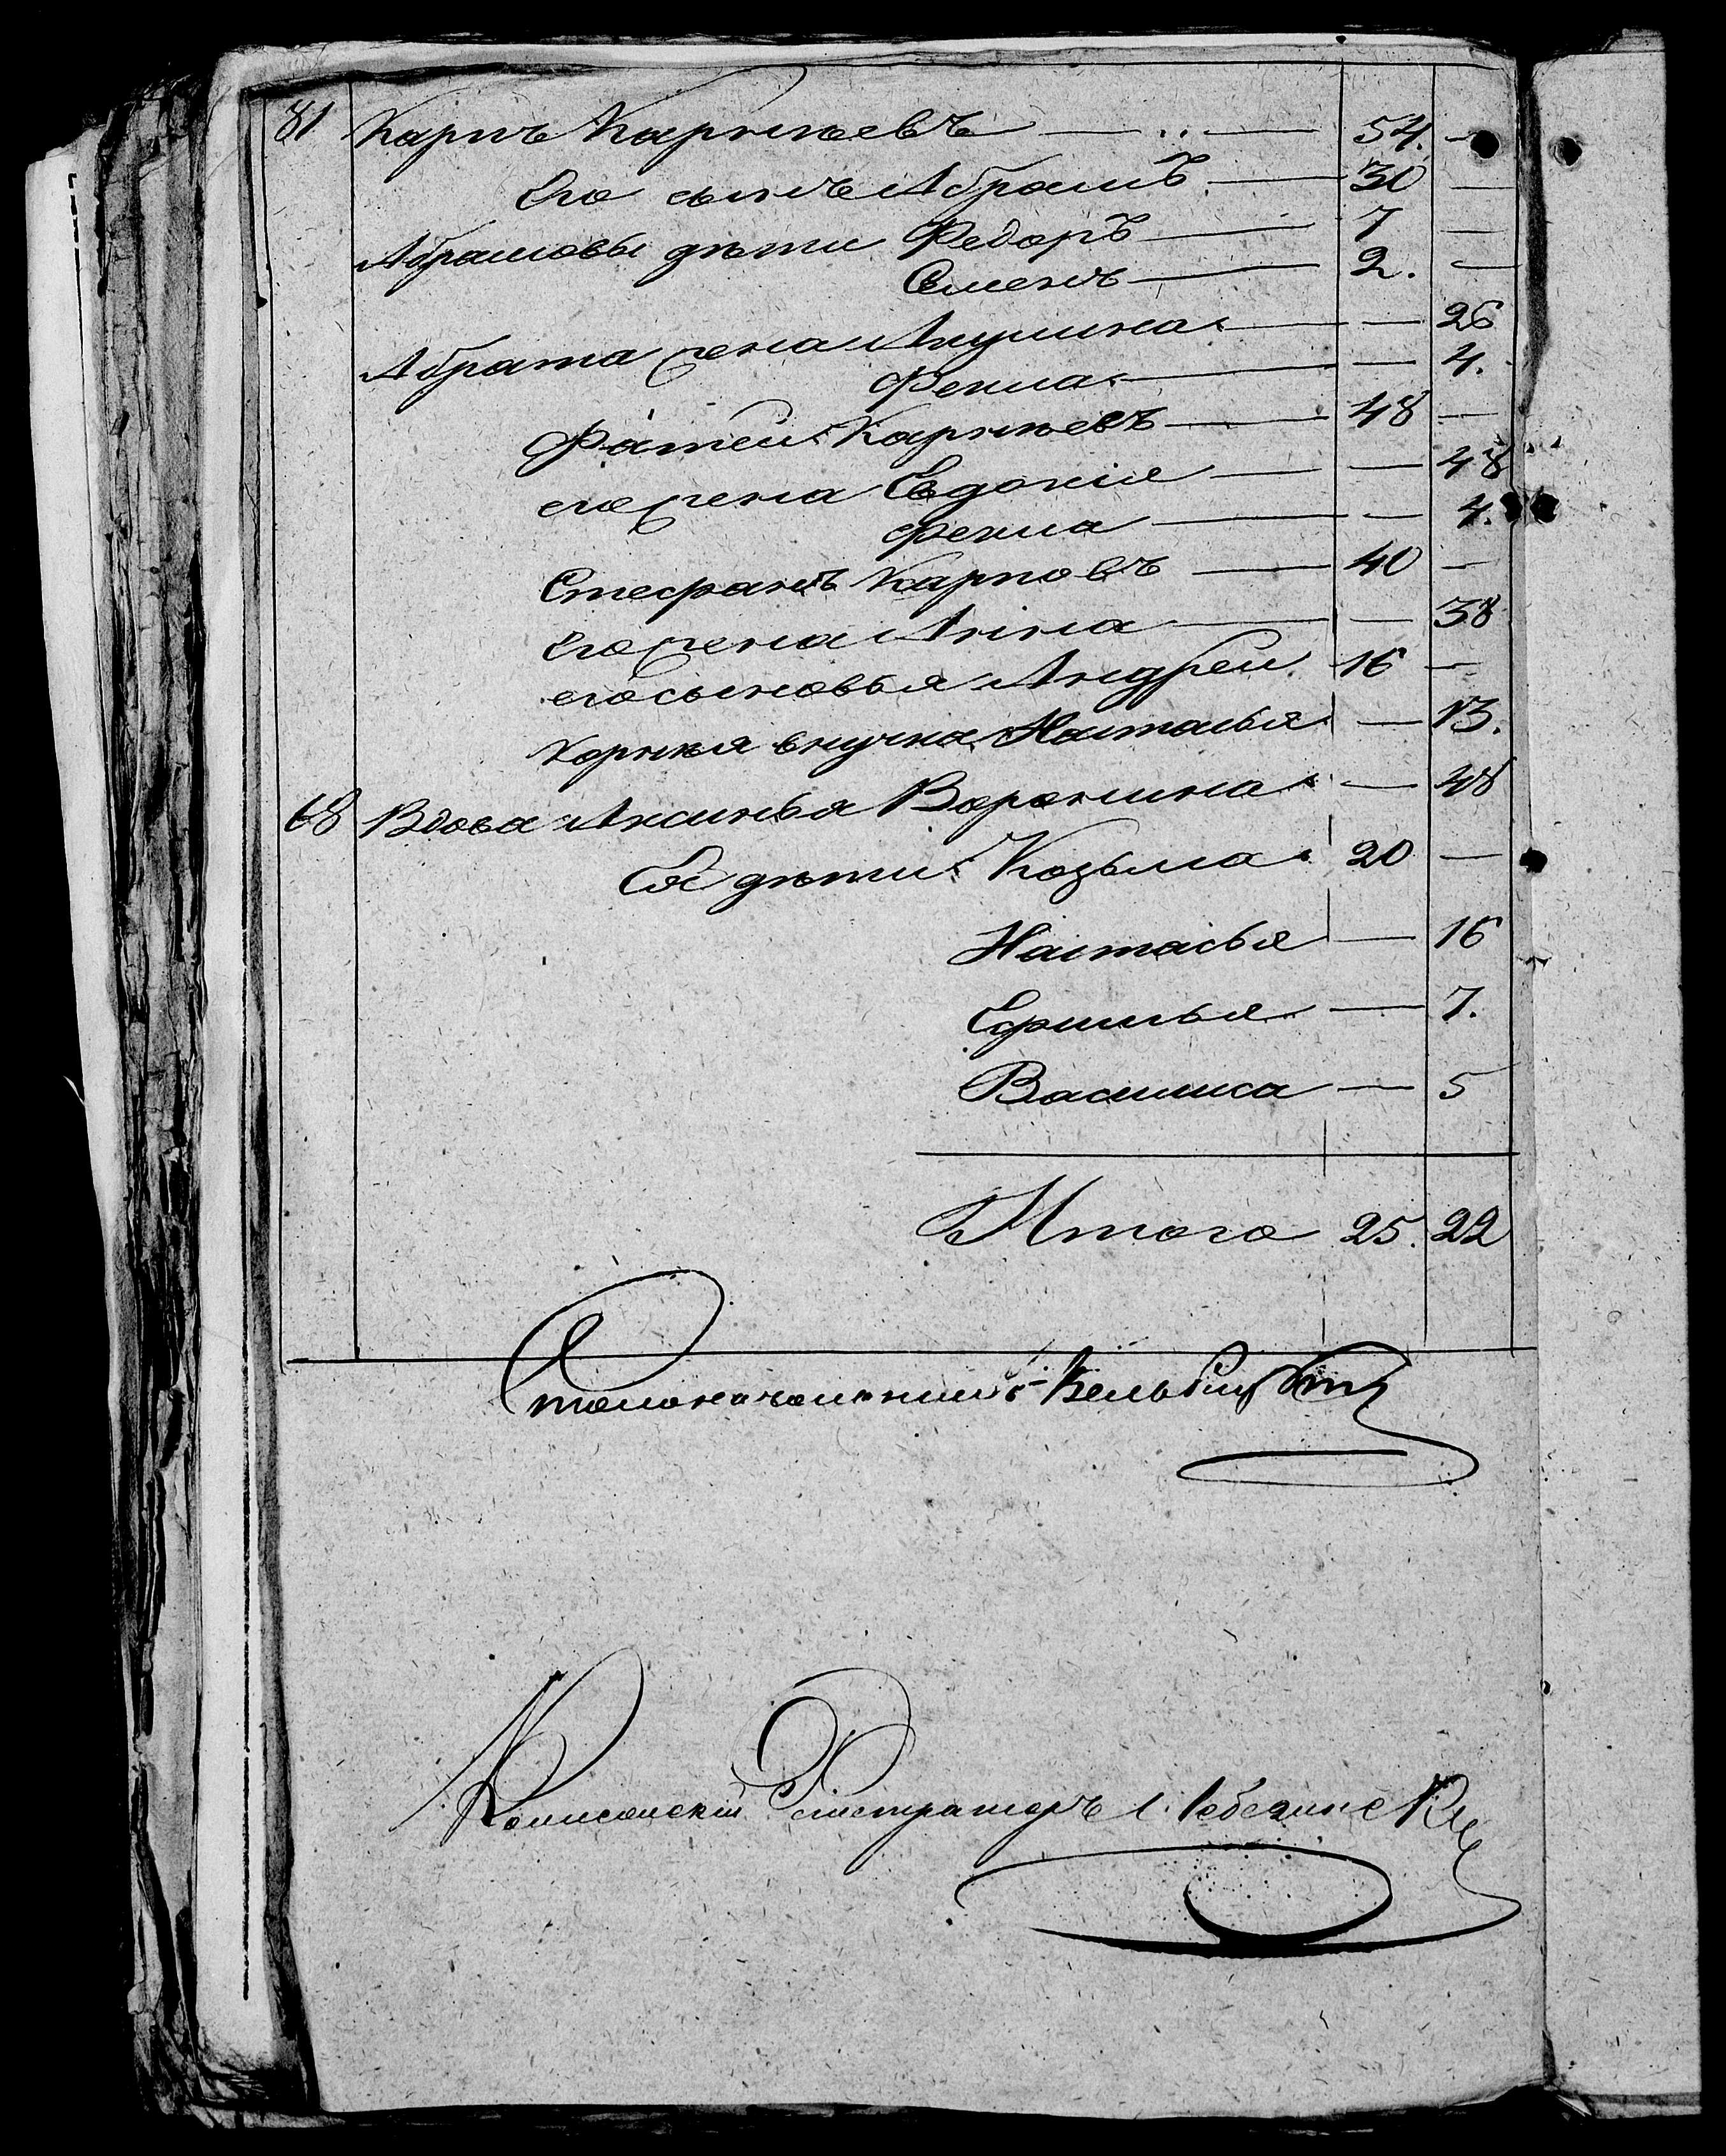 81 Карпъ Карпѣевъ — 54. —
Его сынъ Абрамъ — 30 —
Абрамовы дѣти Федоръ — 7 —
Семенъ — 2. —
Абрама жена Акулина — — 26
Фекла — — 4.
Фатей Карпѣевъ — 48 —
его жена Евдокія — — 48
Фекла — — 4.
Стефанъ Карповъ — 40 —
Его жена Анна — — 38
его сыновья Андрей 16 —
Корнѣя внучка Настасья — 13.
68 Вдова Аксинья Воронина — 48
Ее дѣти Козьма 20 —
Настасья — 16
Ефимья — 7.
Василиса — 5
Итого 25. 22
Столоначальникъ
Коллежскій Регистраторъ